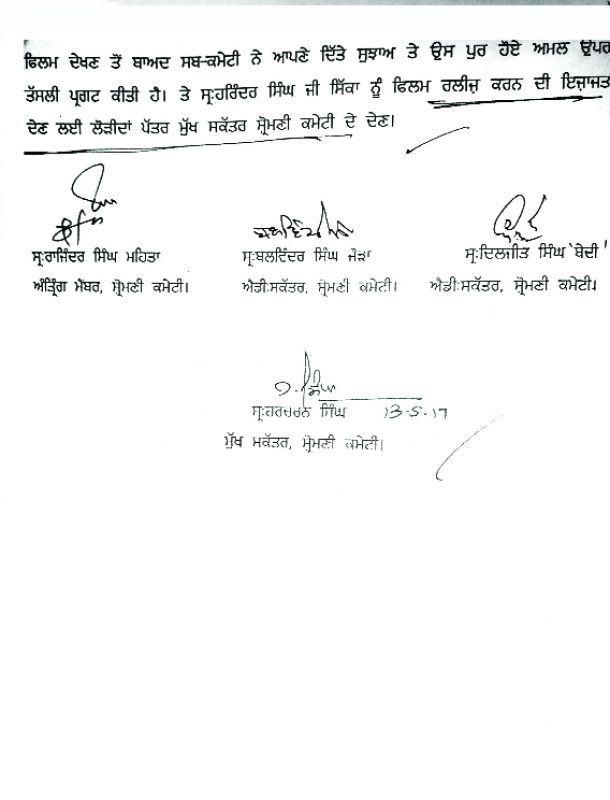 ਫਿਲਮ ਦੇਖਣ ਤੋਂ ਬਾਅਦ ਸਬ-ਕਮੇਟੀ ਨੇ ਆਪਣੇ ਦਿੱਤੇ ਸੁਝਾਅ ਤੇ ਉਸ ਪੁਰ ਹੋਏ ਅਮਲ ਉੱਪਰ
ਤੱਸਲੀ ਪ੍ਰਗਟ ਕੀਤੀ ਹੈ। ਤੇ ਸ੍ਰ:ਹਰਿੰਦਰ ਸਿੰਘ ਜੀ ਸਿੱਕਾ ਨੂੰ ਫਿਲਮ ਰਲੀਜ਼ ਕਰਨ ਦੀ ਇਜ਼ਾਜਤ
ਦੇਣ ਲਈ ਲੋੜੀਦਾਂ ਪੱਤਰ ਮੁੱਖ ਸਕੱਤਰ ਸ਼੍ਰੋਮਣੀ ਕਮੇਟੀ ਦੇ ਦੇਣ।
ਸ੍ਰ:ਰਾਜਿੰਦਰ ਸਿੰਘ ਮਹਿਤਾ ਸ੍ਰ:ਬਲਵਿੰਦਰ ਸਿੰਘ ਜੌੜਾ ਸ੍ਰ:ਦਿਲਜੀਤ ਸਿੰਘ 'ਬੇਦੀ'
ਅੰਤ੍ਰਿੰਗ ਮੈਂਬਰ, ਸ਼੍ਰੋਮਣੀ ਕਮੇਟੀ। ਐਡੀ:ਸਕੱਤਰ, ਸ਼੍ਰੋਮਣੀ ਕਮੇਟੀ। ਐਡੀ:ਸਕੱਤਰ, ਸ਼੍ਰੋਮਣੀ ਕਮੇਟੀ।
ਸ੍ਰ:ਹਰਚਰਨ ਸਿੰਘ 13-5-17
ਮੁੱਖ ਸਕੱਤਰ, ਸ਼੍ਰੋਮਣੀ ਕਮੇਟੀ।